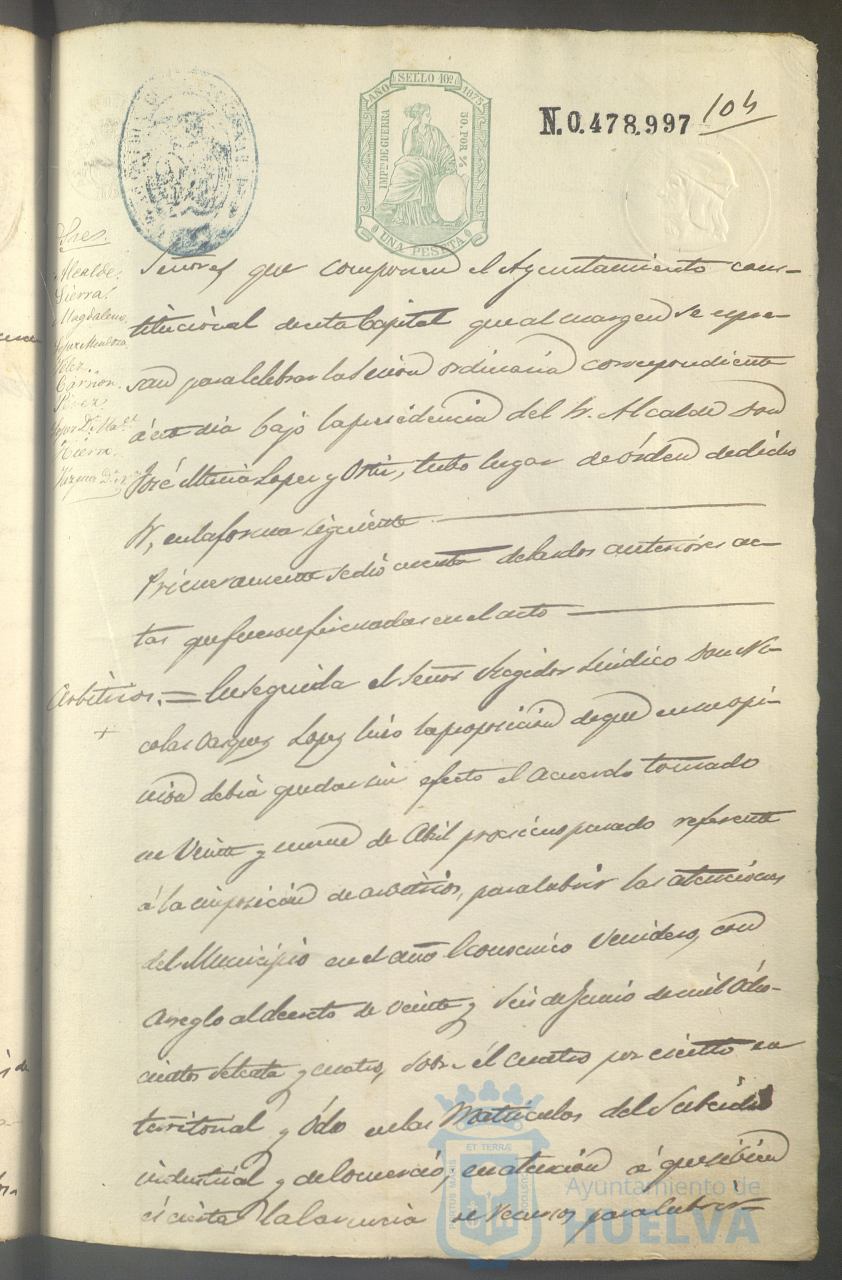 SELLO 10º
AÑO 1875
IMPTO DE GUERRA
50. POR %
UNA PESETA
N.0.478.997
104
Sres.
Alcalde.
Sierra.
Magdaleno.
Lopez Mendoza.
Velez.
Carrion.
Perez.
Lopez
Señores que componen el Ayuntamiento cons-
titucional de esta Capital que al margen se espre-
san para celebrar la Sesion ordinaria correspondiente
á este dia bajo la presidencia del Sr. Alcalde Don
José Maria Lopez y Ortiz, tubo lugar de órden de dicho
Sr, en la forma siguiente
Primeramente se dió cuenta de las dos anteriores ac-
tas que fueron firmadas en el acto
Arbitrios. = En seguida el Señor Regidor Sindico Don Ni-
colas Vazquez Lopez hizo la proposicion de que en su opi-
nion debia quedar sin efecto el acuerdo tomado
en Veinte y nueve de Abril proximo pasado referente
á la imposicion de arbitrios, para cubrir las atenciones
del Municipio en el año Economico Venidero, con
arreglo al decreto de veinte y seis de Junio de mil ócho-
cientos setenta y cuatro, sobre el cuatro por ciento en
territorial y ócho en las Matriculas del Subsidio
industrial y de Comercio, en atencion á que si bien
és cierta la carencia de recursos para cubrir
ET TERRÆ
PORTUS MARIS
CUSTODIA
Ayuntamiento de
HUELVA